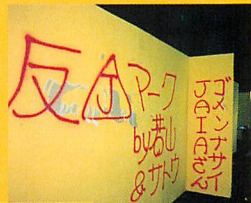 反 J マーク
by 若山
& サトウ
ゴメンナサイ
JAIAさん